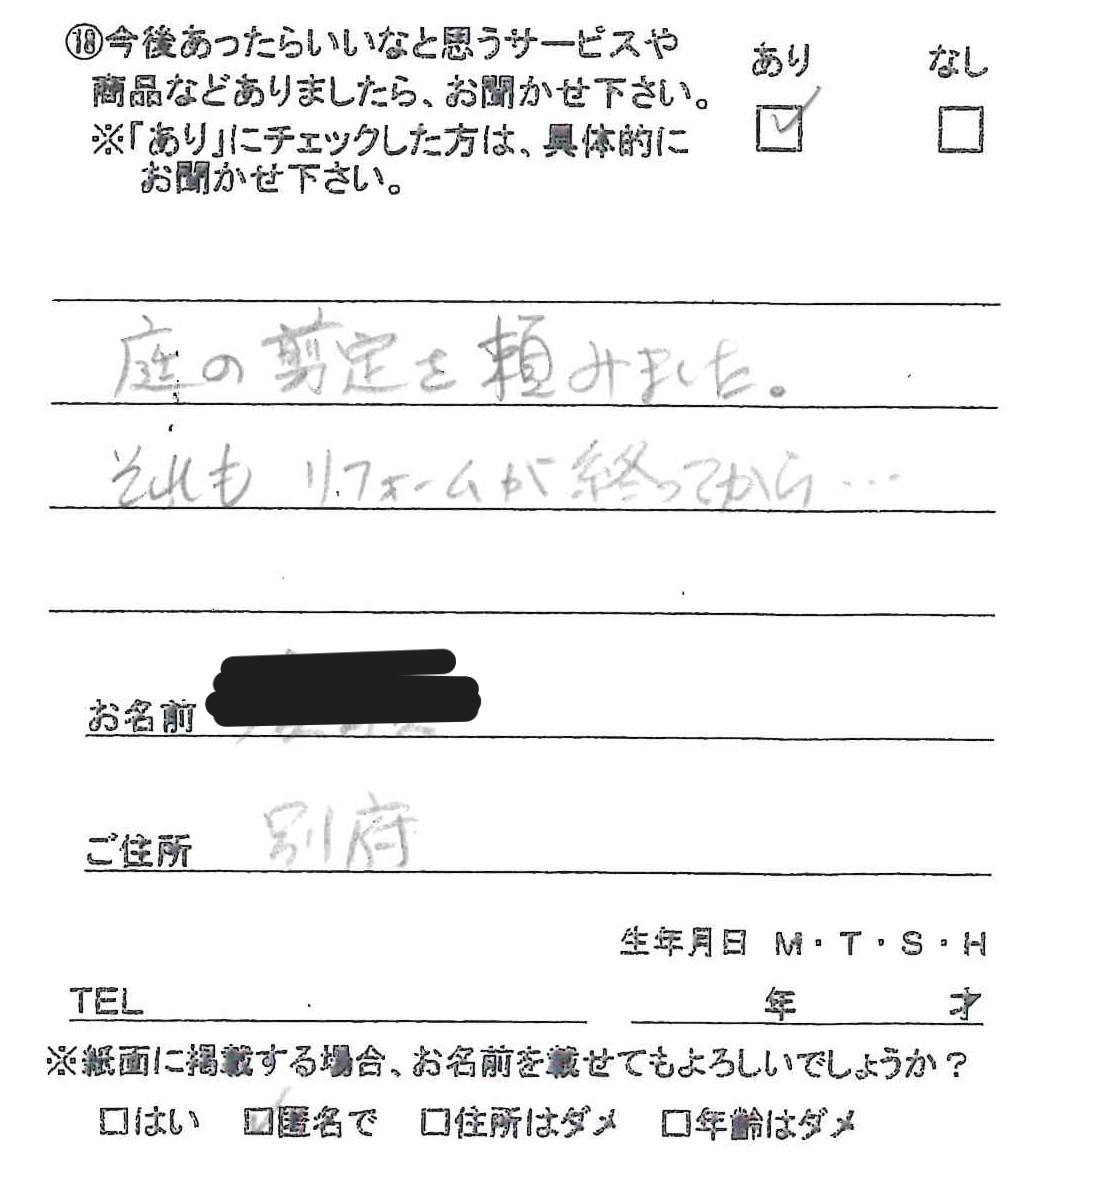 ⑱今後あったらいいなと思うサービスや
商品などありましたら、お聞かせ下さい。
※「あり」にチェックした方は、具体的に
お聞かせ下さい。
あり なし
庭の剪定を頼みました。
それも リフォームが終ってから…
お名前
ご住所 別府
生年月日 M・T・S・H
TEL 年 才
※紙面に掲載する場合、お名前を載せてもよろしいでしょうか?
□はい ☑匿名で □住所はダメ □年齢はダメ